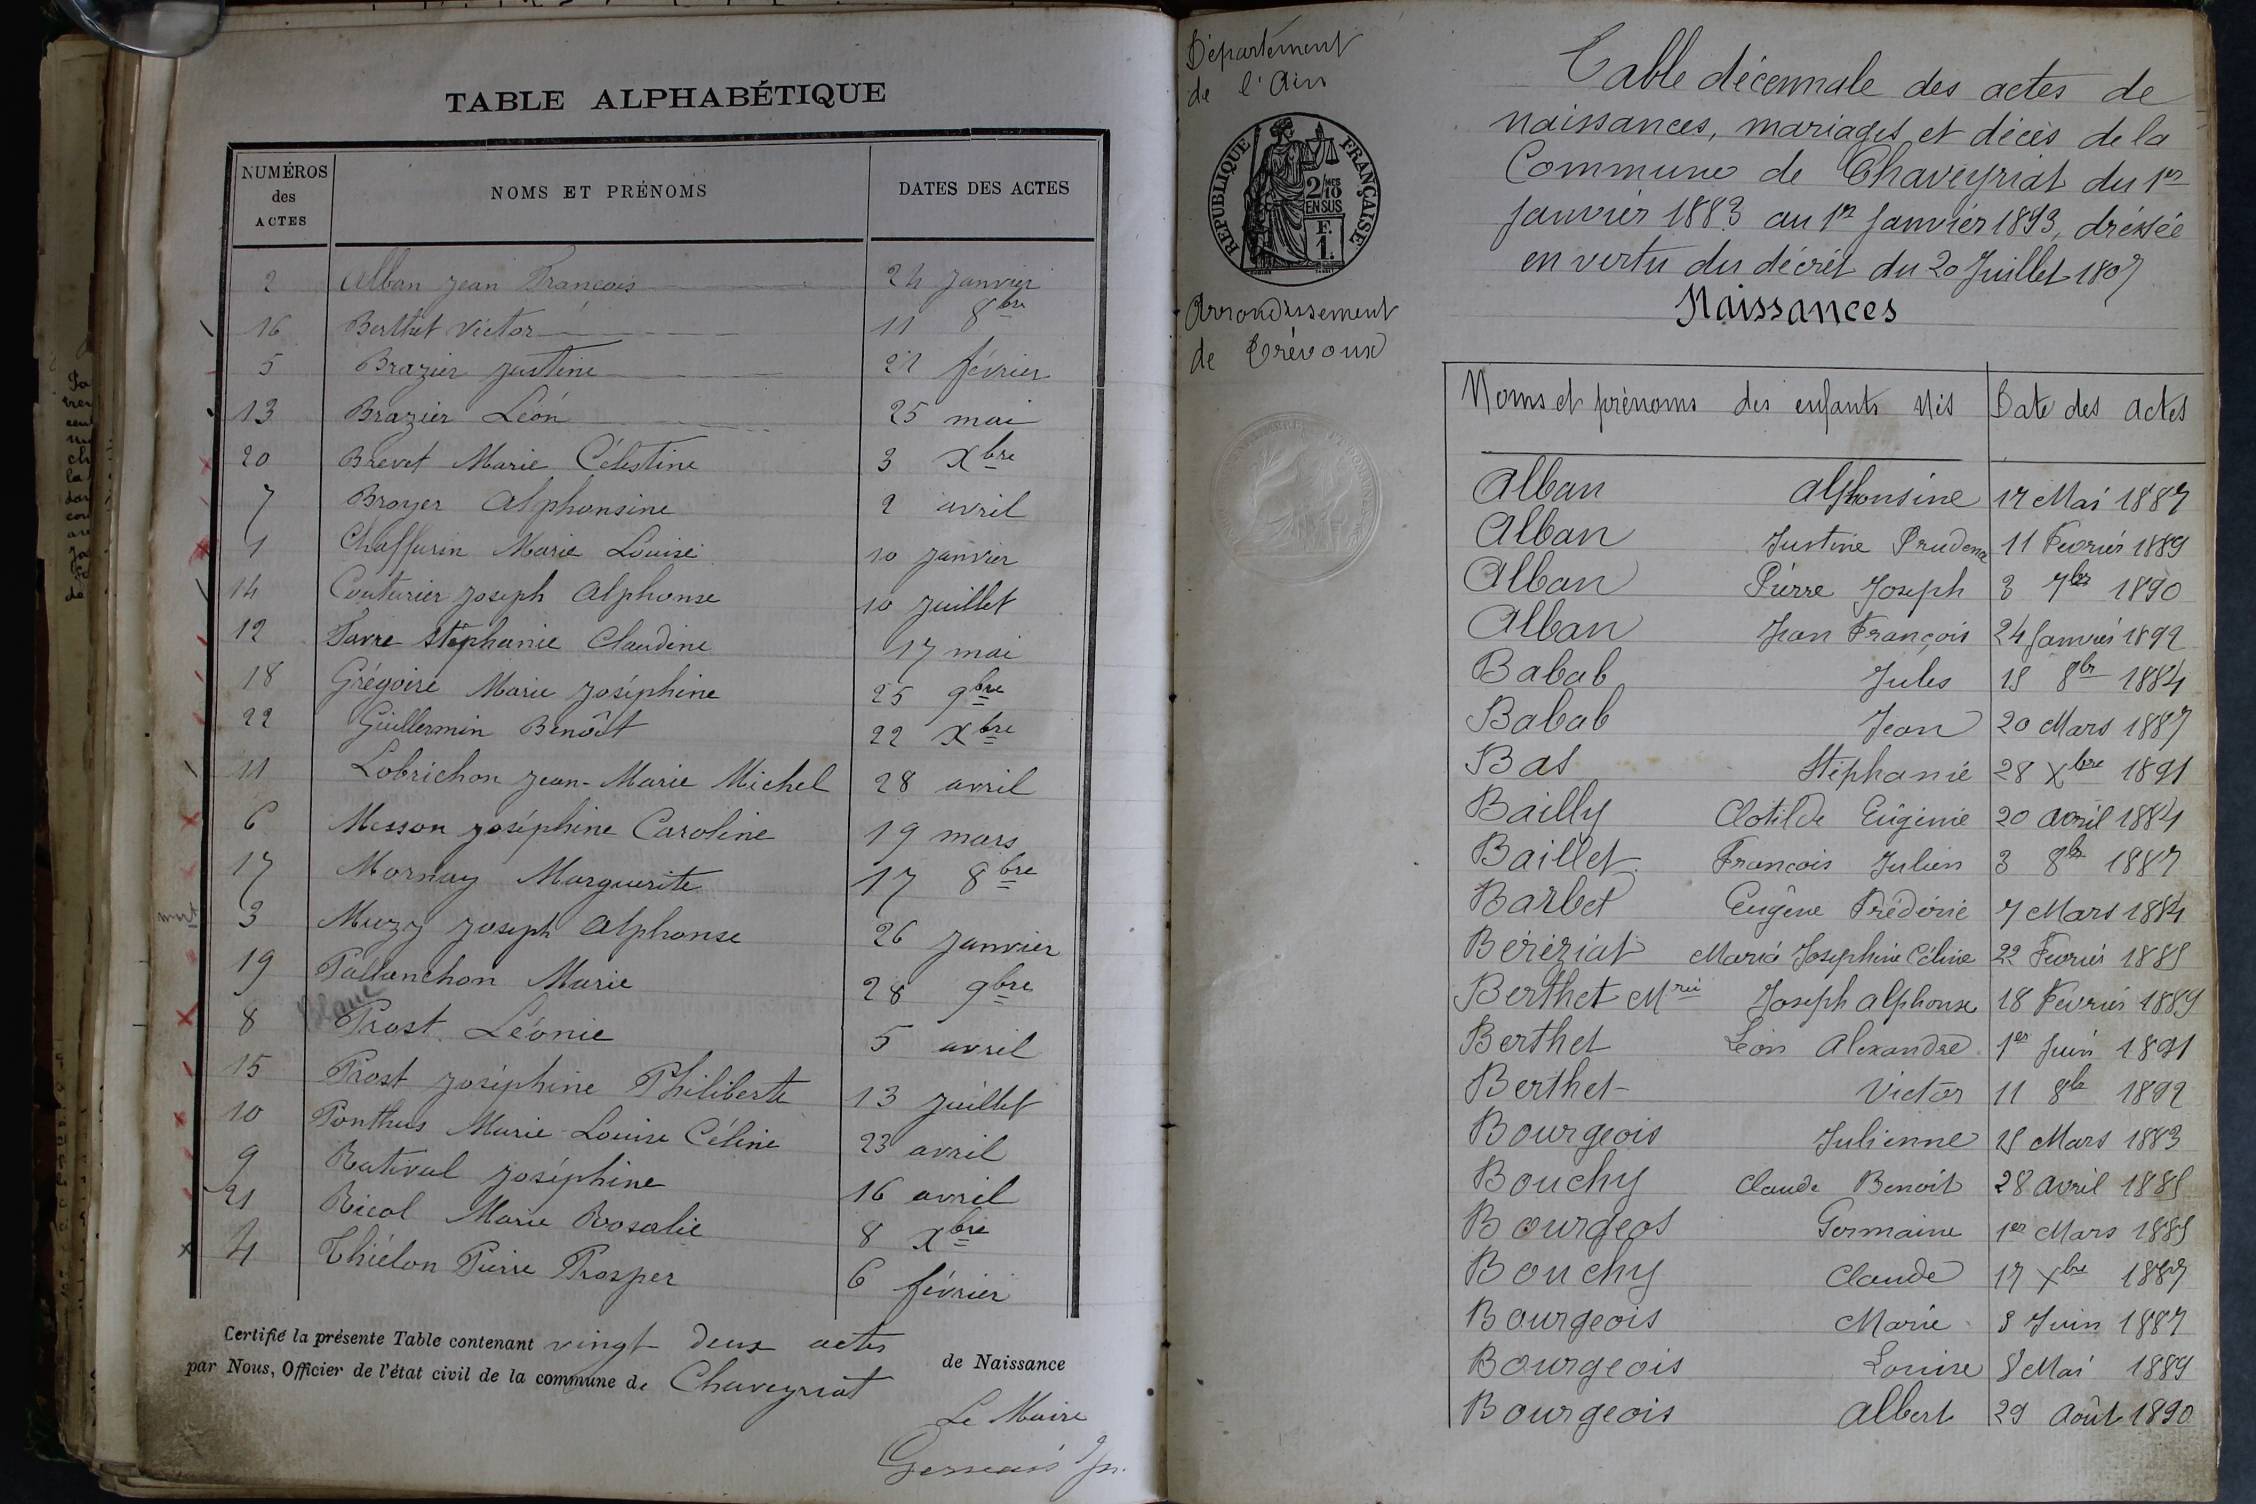 TABLE ALPHABÉTIQUE
NUMÉROS des ACTES NOMS ET PRÉNOMS DATES DES ACTES
2 Alban Jean François 24 janvier
16 Berthet Victor 11 8bre
5 Brazier Justine 21 février
13 Brazier Léon 25 mai
20 Brevet Marie Célestine 3 Xbre
7 Broyer Alphonsine 2 avril
1 Chaffurin Marie Louise 10 janvier
14 Couturier Joseph Alphonse 10 juillet
12 Favre Stéphanie Claudine 17 mai
18 Grégoire Marie Joséphine 25 9bre
22 Guillermin Benoît 22 Xbre
11 Lobrichon Jean-Marie Michel 28 avril
6 Messon Joséphine Caroline 19 mars
17 Mornay Marguerite 17 8bre
mort 3 Muzy Joseph Alphonse 26 janvier
19 Pallanchon Marie 28 9bre
8 Prost Léonie 5 avril
15 Prost Joséphine Philiberte 13 juillet
10 Ponthus Marie Louise Céline 23 avril
9 Rativel Joséphine 16 avril
21 Ricol Marie Rosalie 8 Xbre
4 Thiélon Pierre Prosper 6 février
Certifié la présente Table contenant vingt deux actes de Naissance
par Nous, Officier de l'état civil de la commune de Chaveyriat
Le Maire
Département
de l'Ain
RÉPUBLIQUE FRANÇAISE
2/10
EN SUS
F.
1.
Arrondissement
de Trévoux
Table décennale des actes de
naissances, mariages et décès de la
Commune de Chaveyriat du 1er
Janvier 1883 au 1er Janvier 1893, dréssée
en vertu du décret du 20 Juillet 1807
Naissances
Noms et prénoms des enfants Nés Date des actes
Alban Alphonsine 17 Mai 1887
Alban Justine Prudence 11 Fevrier 1889
Alban Pierre Joseph 3 7br 1890
Alban Jean François 24 Janvier 1892
Babab Jules 15 8br 1884
Babab Jean 20 Mars 1887
Bas Stéphanie 28 Xbre 1891
Bailly Clotilde Eugénie 20 avril 1884
Baillet François Julien 3 8br 1887
Barbet Eugène Frédéric 7 Mars 1884
Béréziat Maria Joséphine Céline 22 Fevrier 1885
Berthet Mrie Joseph Alphonse 18 Fevrier 1889
Berthet Léon Alexandre 1er Juin 1891
Berthet Victor 11 8br 1892
Bourgeois Julienne 25 Mars 1883
Bouchy Claude Benoit 28 avril 1885
Bourgeos Germaine 1er Mars 1885
Bouchy Claude 17 Xbre 1887
Bourgeois Marie 8 Juin 1887
Bourgeois Louise 8 Mai 1889
Bourgeois Albert 29 Août 1890